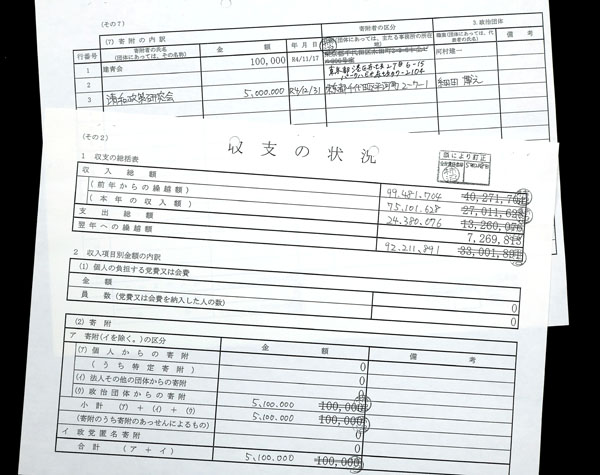 (その7)
(7) 寄附の内訳
寄附者の区分 3.政治団体
行番号 寄附者の氏名 (団体にあっては、その名称) 金額 年月日 職業(団体にあっては、代表者の氏名) 備考
1 建青会 100,000 R4/11/17 河村建一
2
3 清和政策研究会 5,000,000 R4/12/31 東京都千代田区平河町2-7-1 細田博之
(その2)
収支の状況
1 収支の総括表
収入総額 99,481,704 40,271,704
(前年からの繰越額) 75,101,628 27,011,628
(本年の収入額) 24,380,076 13,260,076
支出総額 7,269,813
翌年への繰越額 92,211,891 33,001,891
2 収入項目別金額の内訳
(1) 個人の負担する党費又は会費
金額 0
員数(党費又は会費を納入した人の数) 0
(2) 寄附
ア 寄附(イを除く。)の区分 金額 備考
(ｱ) 個人からの寄附 0
(うち特定寄附) 0
(ｲ) 法人その他の団体からの寄附 0
(ｳ) 政治団体からの寄附 5,100,000 100,000
小計 (ｱ) + (ｲ) + (ｳ) 5,100,000 100,000
(寄附のうち寄附のあっせんによるもの) 0
イ 政党匿名寄附 0
合計 (ア+イ) 5,100,000 100,000